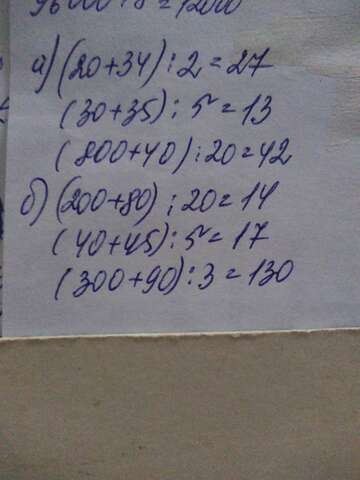 а) (20+34):2=27
(30+35):5=13
(800+40):20=42
б) (200+80):20=14
(40+45):5=17
(300+90):3=130